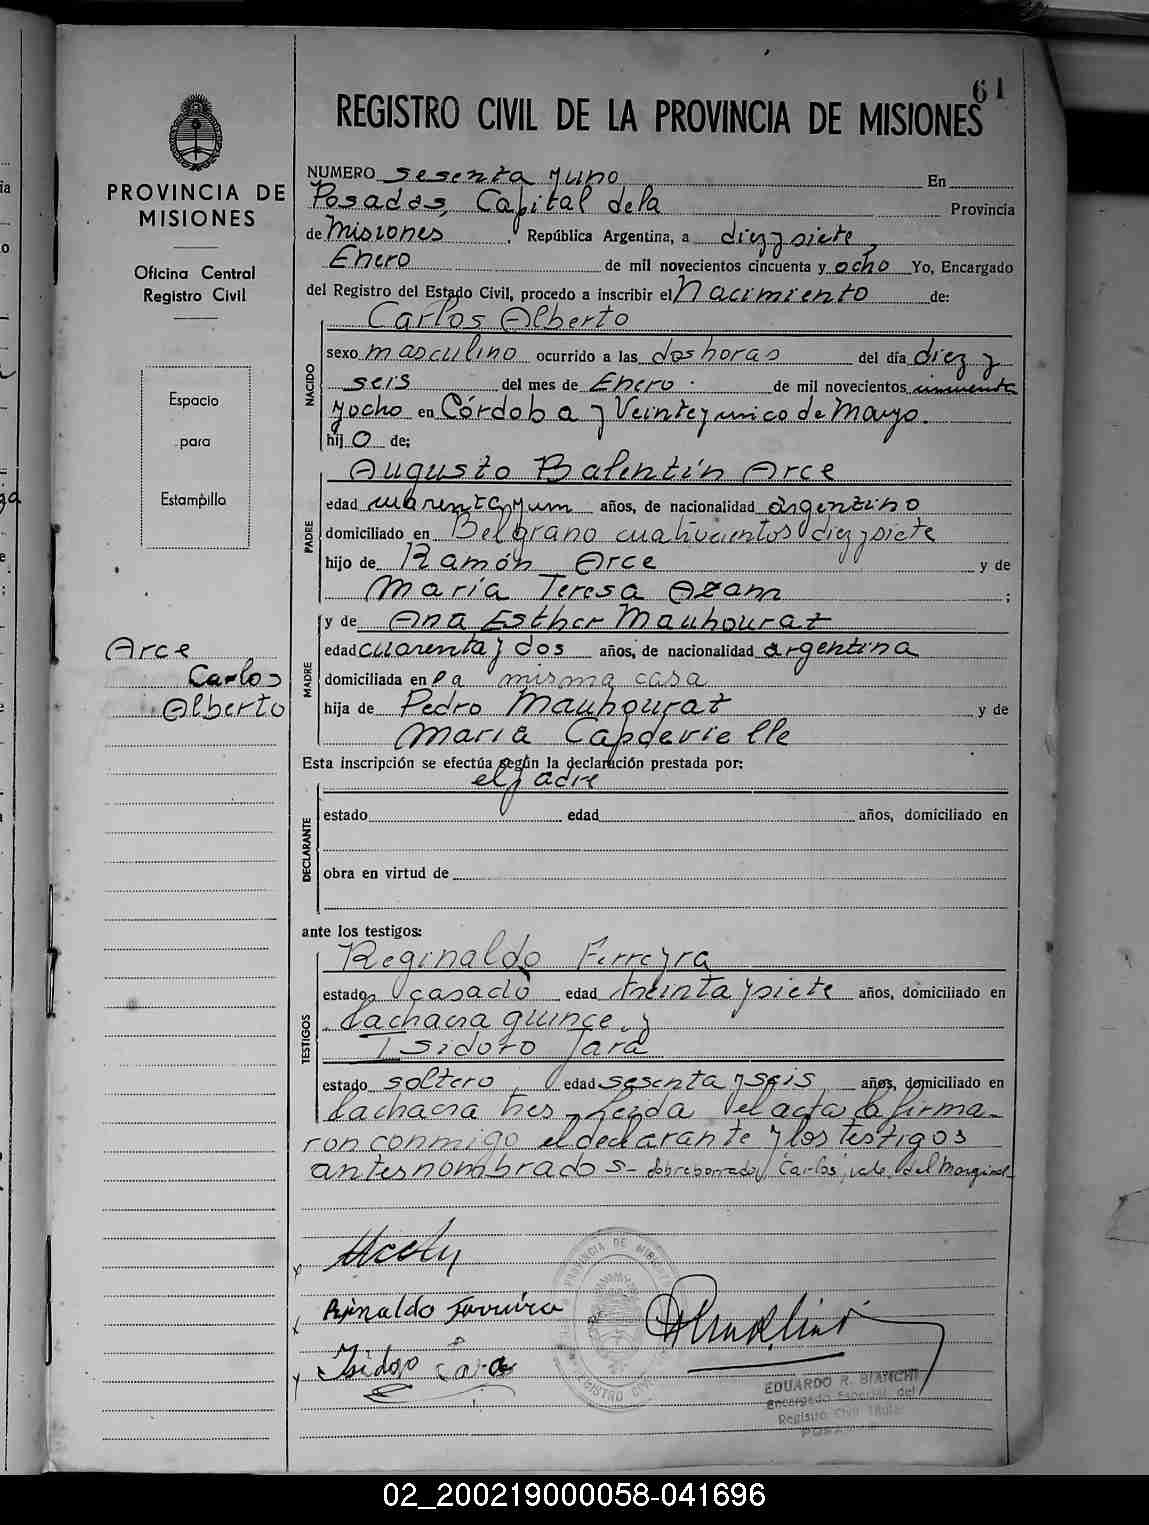 61
REGISTRO CIVIL DE LA PROVINCIA DE MISIONES
PROVINCIA DE
MISIONES
Oficina Central
Registro Civil
Espacio
para
Estampilla
Arce
Carlos
Alberto
NUMERO sesenta y uno En
Posadas, Capital de la Provincia
de Misiones, República Argentina, a diez y siete
Enero de mil novecientos cincuenta y ocho Yo, Encargado
del Registro del Estado Civil, procedo a inscribir el Nacimiento de:
NACIDO
Carlos Alberto
sexo masculino ocurrido a las dos horas del día diez y
seis del mes de Enero de mil novecientos cincuenta
y ocho en Córdoba y Veinte y cinco de Mayo.
hijo de;
PADRE
Augusto Balentín Arce
edad cuarenta y un años, de nacionalidad argentino
domiciliado en Belgrano cuatrocientos diez y siete
hijo de Ramón Arce y de
María Teresa Azam ;
MADRE
y de Ana Esther Mauhourat
edad cuarenta y dos años, de nacionalidad argentina
domiciliada en la misma casa
hija de Pedro Mauhourat y de
María Capdevielle
Esta inscripción se efectúa según la declaración prestada por:
el padre
DECLARANTE
estado edad años, domiciliado en
obra en virtud de
ante los testigos:
TESTIGOS
Reginaldo Ferreyra
estado casado edad treinta y siete años, domiciliado en
la chacra quince y
Isidoro Jara
estado soltero, edad sesenta y seis, años, domiciliado en
la chacra tres - Leida el acta la firma-
ron conmigo el declarante y los testigos
antes nombrados - Sobreborrado, "Carlos", vale, del Marginal
Isidoro Jara
PROVINCIA DE MISIONES
REGISTRO CIVIL
EDUARDO R. BIANCHI
Encargado Especial del
Registro Civil Titular
02_200219000058-041696